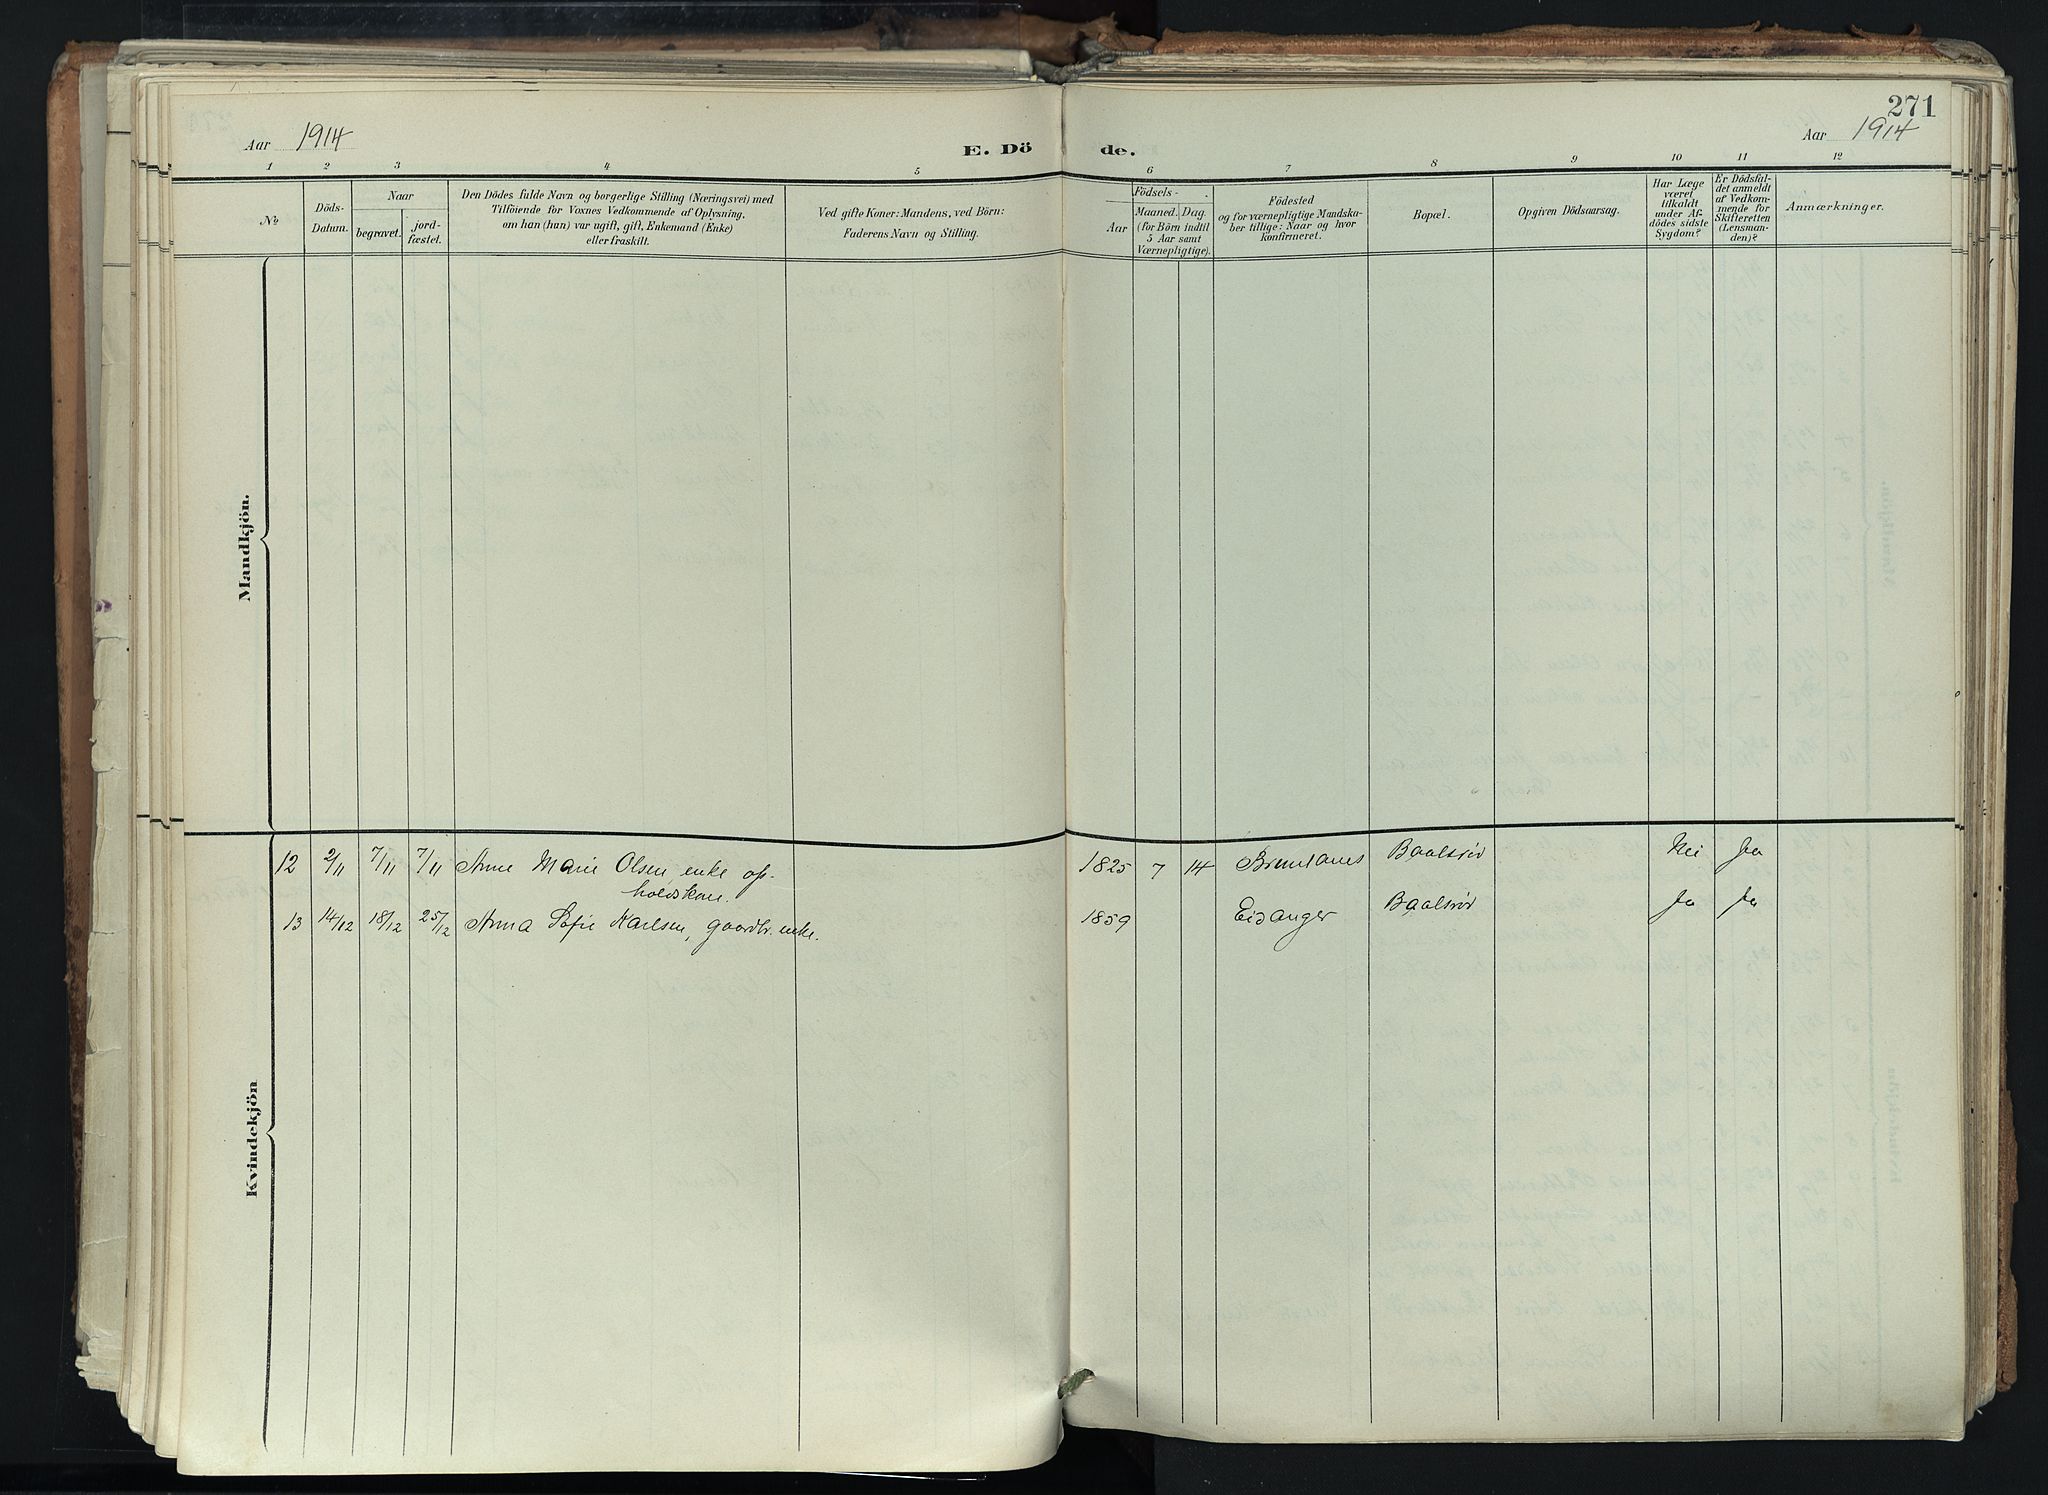 271
Aar 1914
E. Dö
de.
Aar 1914
1 2 3 4 5 6 7 8 9 10 11 12
No
Döds-
Datum.
Naar
begravet.
jord-
fæstet.
Den Dödes fulde Navn og borgerlige Stilling (Næringsvei) med
Tilföiende for Voxnes Vedkommende af Oplysning,
om han (hun) var ugift, gift, Enkemand (Enke)
eller fraskilt.
Ved gifte Koner: Mandens, ved Börn:
Faderens Navn og Stilling.
Födsels-
Aar
Maaned.
Dag.
(for Börn indtil
5 Aar samt
Værnepligtige).
Födested
og for værnepligtige Mandska-
ber tillige: Naar og hvor
konfirmeret.
Bopæl.
Opgiven Dödsaarsag.
Har Læge
været
tilkaldt
under Af-
dödes sidste
Sygdom?
Er Dödsfal-
det anmeldt
af Vedkom-
mende for
Skifteretten
(Lensman-
den)?
Anmærkninger.
Mandkjön.
12 2/11 7/11 7/11 Anne Marie Olsen, enke op-
holdskone. 1825 7 14 Brunlanes Baalsrød Nei Ja
13 14/12 18/12 25/12 Anna Sofie Karlsen, gaardbr. enke. 1859 Eidanger Baalsrød Ja Ja
Kvindekjön